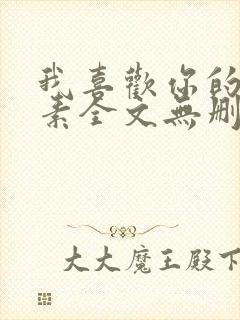 我喜歡你的
素全文無刪
大大魔王殿下